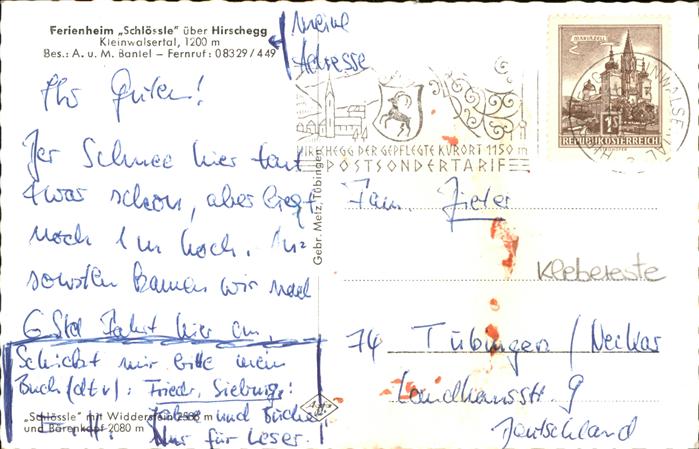 Ferienheim „Schlössle" über Hirschegg
Kleinwalsertal, 1200 m
Bes.: A. u. M. Bantel – Fernruf: 08329/449
meine
Adresse
Ihr Guten!
Der Schnee hier taut
zwar schon, aber liegt
noch 1 m hoch. An-
sonsten kamen wir nach
6 Std Fahrt hier an.
Schickt mir bitte mein
Buch (dtv): Friedr. Sieburg:
und Bücher
Nur für Leser.
„Schlössle" mit Widderstein 2536 m
und Bärenkopf 2080 m
Gebr. Metz, Tübingen
MARIAZELL
1 S
REPUBLIK ÖSTERREICH
HIRSCHEGG DER GEPFLEGTE KURORT 1150 m
POSTSONDERTARIF
Fam. Zieler
Klebereste
74 Tübingen / Neckar
Landhausstr. 9
Deutschland